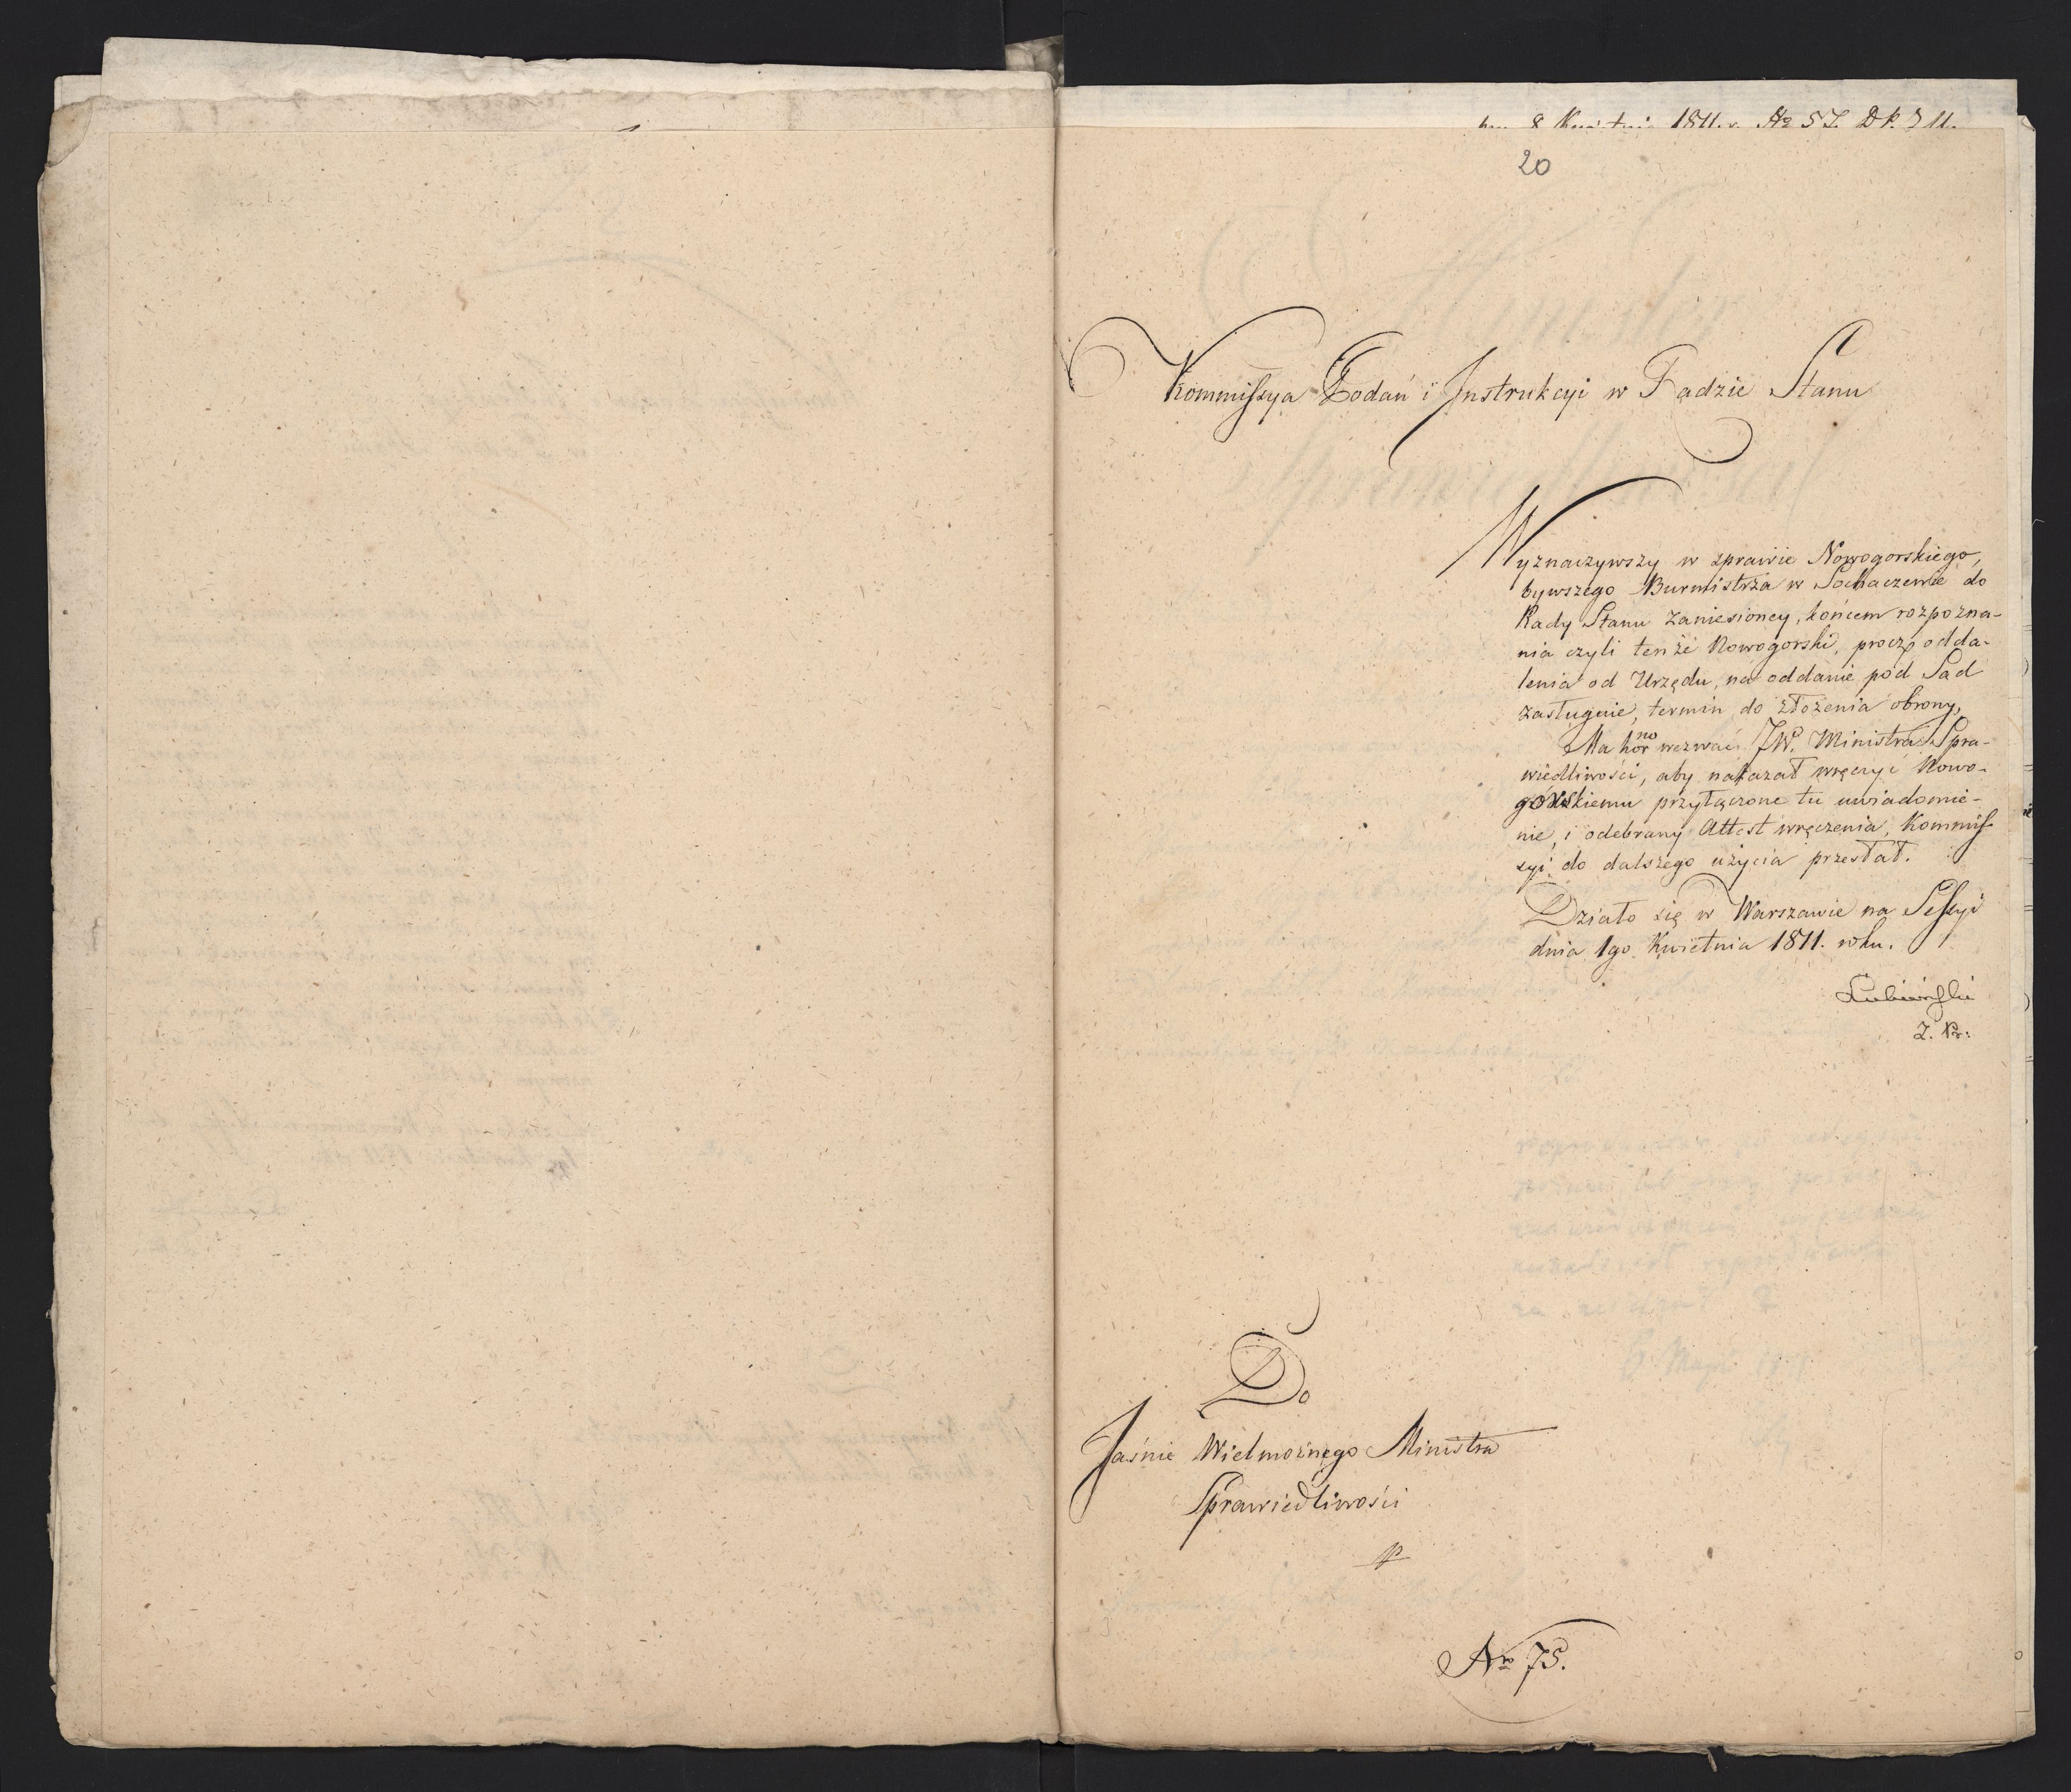 8 Kwietnia 1811. r. No 57. D P. 311.
20
Kommissya Podań i Instrukcyi w Radzie Stanu
Wyznaczywszy w sprawie Nowogorskiego,
bywszego Burmistrza w Sochaczewie do
Rady Stanu zaniesioney, końcem rozpozna-
nia czyli tenże Nowogorski, procz odda-
lenia od Urzędu, na oddanie pod Sąd
zasługuie, termin do złożenia obrony,
Ma honor wezwać JW. Ministra Spra-
wiedliwości, aby nakazał wręczyć Nowo-
górskiemu przyłączone tu uwiadomie-
nie, i odebrany Attest wręczenia, Kommis-
syi do dalszego użycia przesłał.
Działo się w Warszawie na Sessyi
dnia 1go Kwietnia 1811. roku.
Lubieński
Z. Pr:
Do
Jaśnie Wielmożnego Ministra
Sprawiedliwości
No 75.